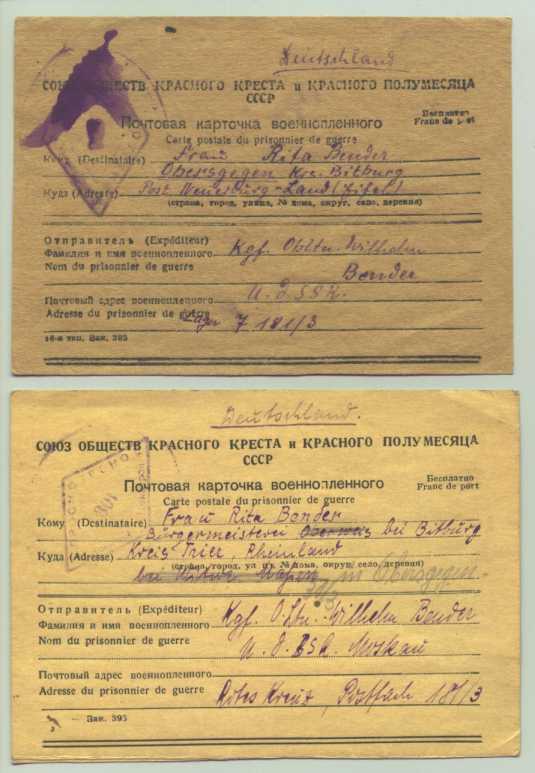 Deutschland
СОЮЗ ОБЩЕСТВ КРАСНОГО КРЕСТА и КРАСНОГО ПОЛУМЕСЯЦА
СССР
Почтовая карточка военнопленного
Бесплатно
Franc de port
Carte postale du prisonnier de guerre
Кому (Destinataire) Frau Rita Bender
Obersgegen Krs. Bitburg
Куда (Adresse) Post Neuerburg-Land (Eifel)
(страна, город, улица, № дома, округ, село, деревня)
Отправитель (Expéditeur)
Фамилия и имя военнопленного Kgf. Obltn. Wilhelm
Nom du prisonnier de guerre Bender
Почтовый адрес военнопленного U.d.SSR.
Adresse du prisonnier de guerre Lager 7 181/3
16-я тип. Зак. 395
Deutschland.
СОЮЗ ОБЩЕСТВ КРАСНОГО КРЕСТА и КРАСНОГО ПОЛУМЕСЯЦА
СССР
Почтовая карточка военнопленного
Бесплатно
Franc de port
Carte postale du prisonnier de guerre
Кому (Destinataire) Frau Rita Bender
Bürgermeisterei bei Bitburg
Куда (Adresse) Kreis Trier, Rheinland
(страна, город, улица, № дома, округ, село, деревня)
bei in Obersgegen
Отправитель (Expéditeur)
Фамилия и имя военнопленного Kgf. O.Ltn. Wilhelm Bender
Nom du prisonnier de guerre U.d.SSR. Moskau
Почтовый адрес военнопленного
Adresse du prisonnier de guerre Rotes Kreuz, Postfach 181/3
Зак. 395